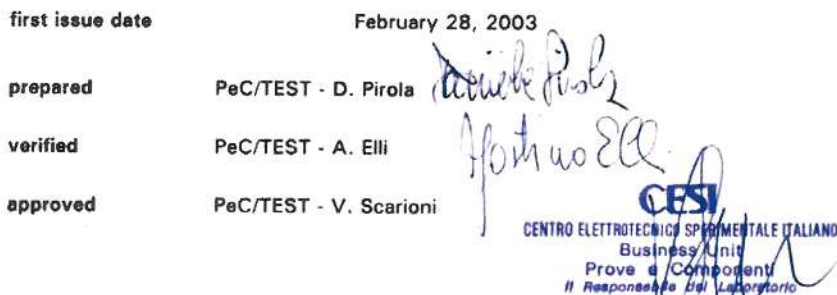 first issue date February 28, 2003
prepared PeC/TEST - D. Pirola Daniele Pirola
verified PeC/TEST - A. Elli Agostino Elli
approved PeC/TEST - V. Scarioni
CESI
CENTRO ELETTROTECNICO SPERIMENTALE ITALIANO
Business Unit
Prove e Componenti
Il Responsabile del Laboratorio